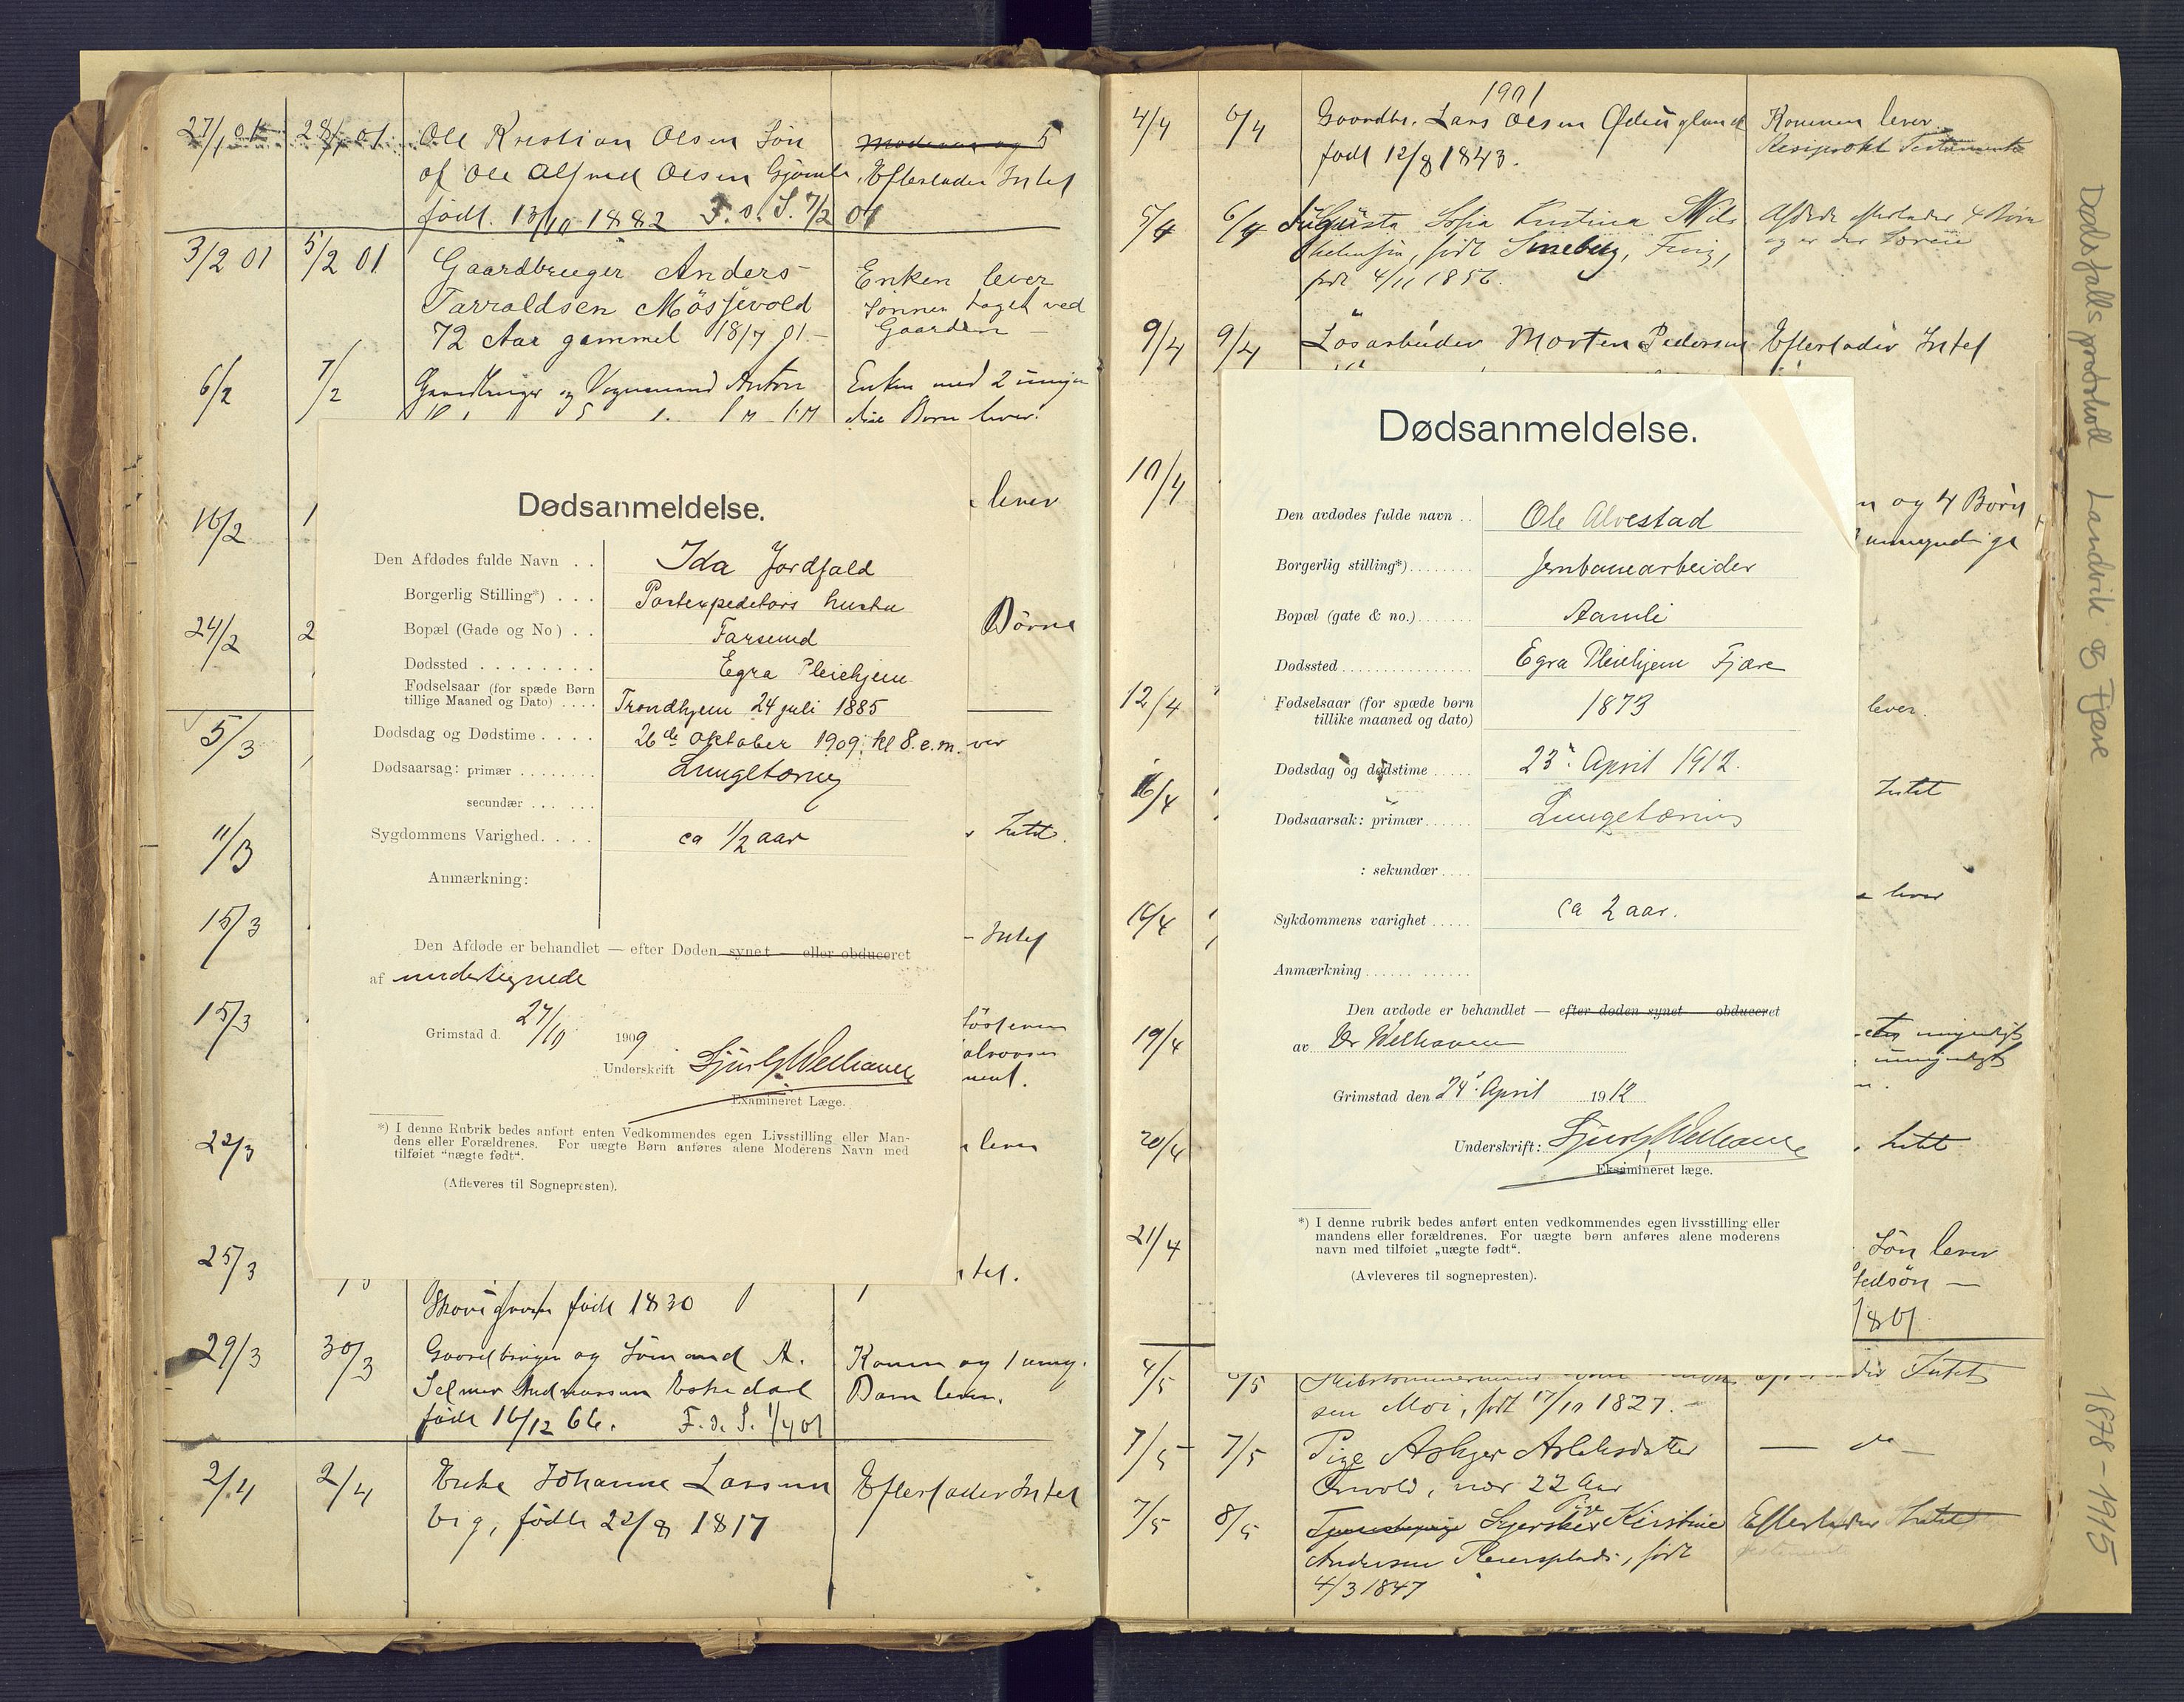 27/1 01 28/1 01 Ole Kristian Olsen Søn Moderen og 5
af Ole Alfred Olsen Efterlader Intet
født. 13/10 1882 F. s. S. 7/2 01
3/2 01 5/2 01 Gaardbruger Anders Enken lever
Tarraldsen Møsjevold Sønnen taget ved
72 Aar gammel 18/7 01 - Gaarden -
6/2 7/2 Gaardbruger og Vognmand Anton Enken med 2 umyn
dige Børn lever.
16/2 1 lever
24/2 2 Børn
5/3 ver
11/3 Intet.
15/3 - Intet
15/3
22/3 lever
25/3 tet.
født 1830
29/3 30/3 Gaardbruger og Sømand A. Konen og 1 umy.
Selmer Andreassen Eskedal Barn lever.
født 16/12 66. F. s. S. 1/4 01
2/4 2/4 Enke Johanne Larsen Efterlader Intet
Vig, født 22/8 1817
Dødsanmeldelse.
Den Afdødes fulde Navn . . Ida Jordfald
Borgerlig Stilling*) . . . Postexpeditørs hustru
Bopæl (Gade og No) . . Farsund
Dødssted . . . . . . . . Egra Pleiehjem
Fødselsaar (for spæde Børn
tillige Maaned og Dato) . . . . Trondhjem 24 juli 1885
Dødsdag og Dødstime . . . . 26de oktober 1909. kl 8. e.m.
Dødsaarsag: primær . . . . . . . . Lungetæring
secundær . . . . . .
Sygdommens Varighed. . . . ca 1/2 aar
Anmærkning:
Den Afdøde er behandlet — efter Døden synet — eller obduceret
af undertegnede
Grimstad d. 27/10 1909
Underskrift Sjur G Welhaven
Examineret Læge.
*) I denne Rubrik bedes anført enten Vedkommendes egen Livsstilling eller Man-
dens eller Forældrenes. For uægte Børn anføres alene Moderens Navn med
tilføiet "uægte født".
(Afleveres til Sognepresten).
1901
4/4 6/4 Gaardbr. Lars Olsen Ødeigland Konen lever
født 12/8 1843. Resiprokt Testamente
5/4 6/4 Augusta Sofia Kristina Nils Afdøde efterlader 4 Børn
født 4/11 1856.
9/4 9/4 Løsarbeider Morten Pedersen Efterlader Intet
10/4 n og 4 Børn
umyndige
12/4 lever.
16/4 Intet
16/4 lever
19/4
20/4 Intet
21/4 Søn lever
Stedsøn —
4/5 Intet
sen Moi, født 17/10 1827. -
7/5 7/5 Pige Asbjer Aslaksdatter — do —
22 Aar
7/5 8/5 Pige Kirstine Efterlader Intet
Andersen Reiersplads, født
4/3 1847
Dødsanmeldelse.
Den avdødes fulde navn . . Ole Alvestad
Borgerlig stilling*) . . . . . . . Jernbanearbeider
Bopæl (gate & no.) . . . . . . . Aamli
Dødssted . . . . . . . . . . . . . . . . Egra Pleiehjem Fjære
Fødselsaar (for spæde børn 1873
tillike maaned og dato)
Dødsdag og dødstime . . . . . 23. April 1912.
Dødsaarsak: primær . . . . . . Lungetæring
: sekundær . . . .
Sykdommens varighet . . . . . ca 2 aar.
Anmærkning . . . . . . . . . . . .
Den avdøde er behandlet — efter døden synet — obduceret
av Dr Welhaven
Grimstad den 24. April 1912
Underskrift: Sjur G Welhaven
Eksamineret læge.
*) I denne rubrik bedes anført enten vedkommendes egen livsstilling eller
mandens eller forældrenes. For uægte børn anføres alene moderens
navn med tilføiet „uægte født“.
(Avleveres til sognepresten).
Dødsfallsprotokoll Landvik og Fjære 1878-1915